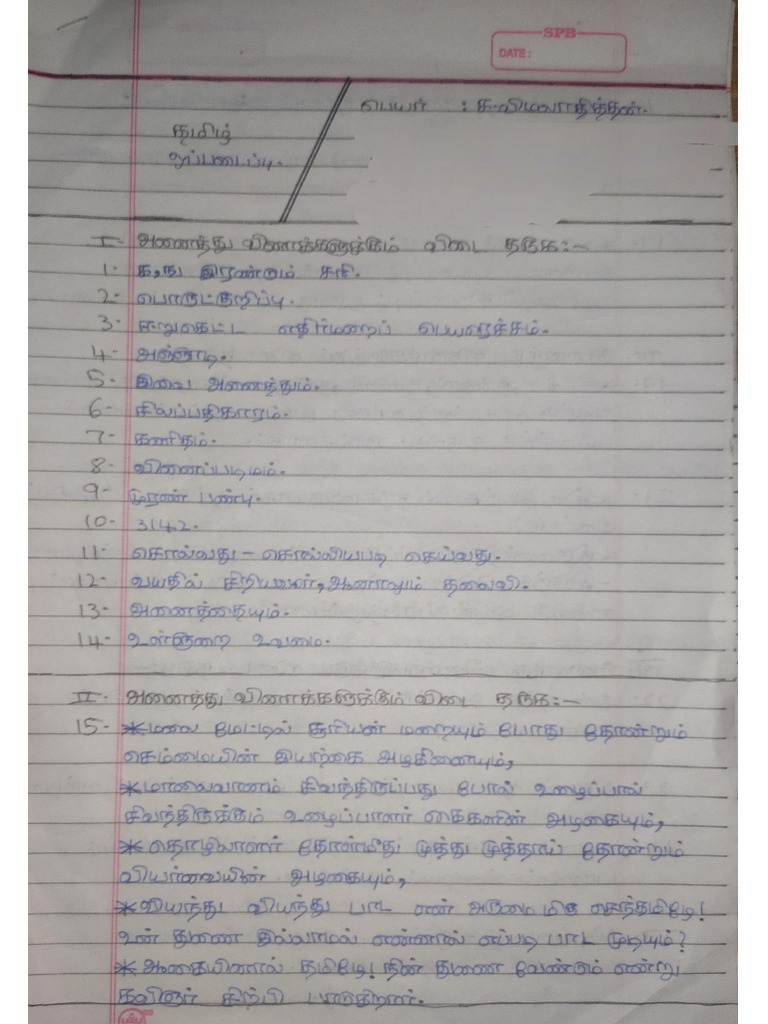 SPB
DATE:
பெயர் : க.விமலாதித்தன்.
தமிழ்
ஒப்படைப்பு.
I- அனைத்து வினாக்களுக்கும் விடை தருக:-
1- க,ந இரண்டும் சரி.
2- பொருட்குறிப்பு.
3- ஈறுகெட்ட எதிர்மறைப் பெயரெச்சம்.
4- அஞ்ஞாடி.
5- இவை அனைத்தும்.
6- சிலப்பதிகாரம்.
7- கணிதம்.
8- வினைப்படிமம்.
9- முரண் பண்பு.
10- 3142.
11- சொல்வது - சொல்லியபடி செய்வது.
12- வயதில் சிறியவள், ஆனாலும் தலைவி.
13- அனைத்தையும்.
14- உள்ளுறை உவமை.
II- அனைத்து வினாக்களுக்கும் விடை தருக:-
15- *மலை மேட்டில் சூரியன் மறையும் போது தோன்றும்
செம்மையின் இயற்கை அழகினையும்,
*மாலைவானம் சிவந்திருப்பது போல் உழைப்பால்
சிவந்திருக்கும் உழைப்பாளர் கைகளின் அழகையும்,
*தொழிலாளர் தோள்மீது முத்து முத்தாய் தோன்றும்
வியர்வையின் அழகையும்,
*வியந்து வியந்து பாட என் அருமை மிகு செந்தமிழே!
உன் துணை இல்லாமல் என்னால் எப்படி பாட முடியும்?
*ஆகையினால் தமிழே! நின் துணை வேண்டும் என்று
கவிஞர் சிற்பி பாடுகிறார்.